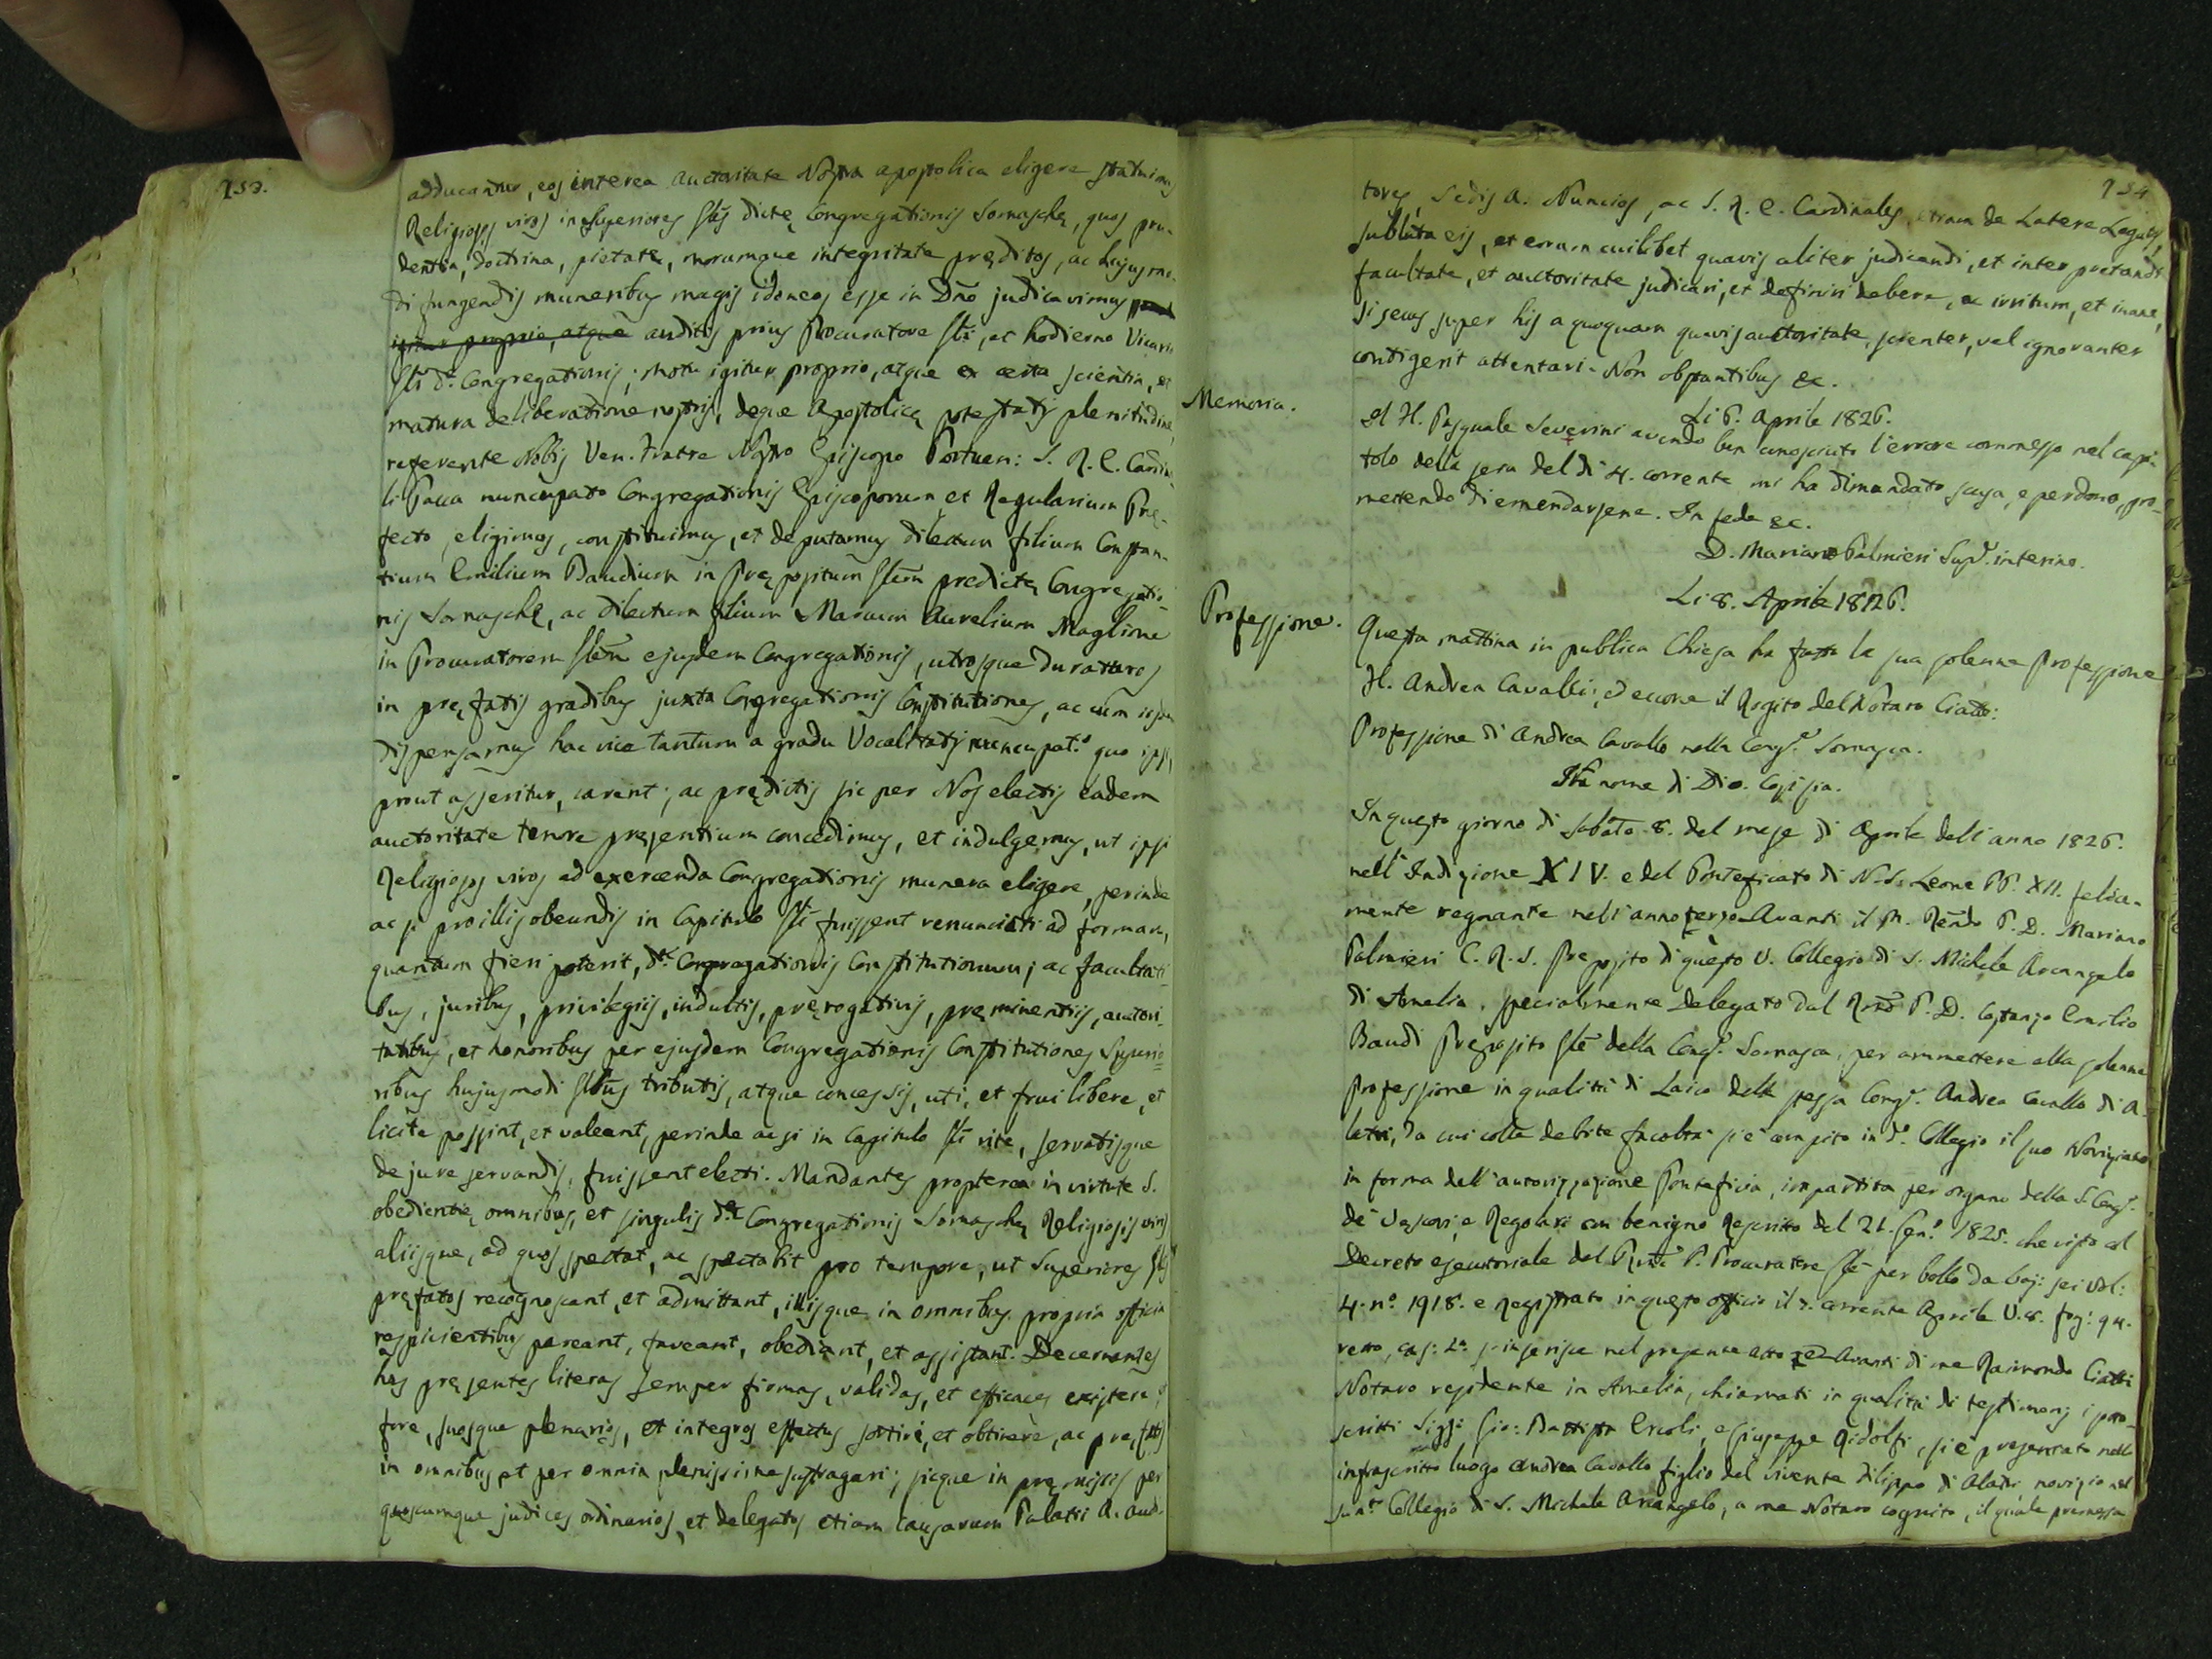 153.
adducantur, eos interea Auctoritate Nostra apostolica eligere statuimus
Religiosos viros in Superiores Gles dictę Congregationis Somaschę, quos pru-
dentia, doctrina, pietate, morumque integritate pręditos, ac hujusmo-
di fungendis muneribus magis idoneos esse in Dno judicavimus
igitur proprio, atque auditis prius Procuratore Gli, ac hodierno Vicario
Gli d.ę Congregationis; Motu igitur proprio, atque ex certa scientia, et
matura deliberatione nostris, deque Apostolicę potestatis plenitudine,
referente Nobis Ven. Fratre Nostro Episcopo Portuen: S. R. E. Cardina-
li Pacca nuncupato Congregationis Episcoporum et Regularium Prę-
fecto, eligimus, constituimus, et deputamus dilectum filium Constan-
tium Emilium Baudium in Prępositum Glem predictę Congregatio-
nis Somaschę, ac dilectum filium Marcum Aurelium Maglione
in Procuratorem Glem ejusdem Congregationis, utrosque duraturos
in pręfatis gradibus juxta Congregationis Constitutiones, ac cum iisdem
dispensamus hac vice tantum a gradu Vocalitatis nuncupat.o quo ipsi,
prout asseritur, carent; ac prędictis sic per Nos electis eadem
auctoritate tenore pręsentium concedimus, et indulgemus, ut ipsi
Religiosos viros ad exercenda Congregationis munera eligere, perinde
ac si pro illis obeundis in Capitulo Gli fuissent renunciati ad formam,
quantum fieri poterit, d.ę Congregationis Constitutionum; ac facultati-
bus, juribus, privilegiis, indultis, pręrogativis, pręminentiis, auctori-
tatibus, et honoribus per ejusdem Congregationis Constitutiones Superio-
ribus hujusmodi Glibus tributis, atque concessis, uti, et frui libere, et
licite possint, et valeant, perinde ac si in Capitulo Gli rite, servatisque
de jure servandis, fuissent electi. Mandantes propterea in virtute S.
obedientię omnibus, et singulis d.ę Congregationis Somaschę Religiosis viris
aliisque, ad quos spectat, ac spectabit pro tempore, ut Superiores Gles
pręfatos recognoscant, et admittant, illisque in omnibus propria officia
respicientibus pareant, faveant, obediant, et assistant. Decernentes
has pręsentes literas semper firmas, validas, et efficaces existere, et
fore, suosque plenarios, et integros effectus sortiri, et obtinere, ac pręfatis
in omnibus et per omnia plenissime suffragari; sicque in pręmissis per
quoscumque judices ordinarios, et delegatos etiam Causarum Palatii A. Aud-
154
tores, Sedis A. Nuncios, ac S. R. E. Cardinales, etiam de Latere Legatos,
sublata eis, et eorum cuilibet quavis aliter judicandi, et interpretandi
facultate, et auctoritate judicari, et definiri debere, ac irritum, et inane,
si secus super his a quoquam quavis auctoritate, scienter, vel ignoranter
contigerit attentari. Non obstantibus &c.
Memoria.
Li 6. Aprile 1826.
Il H. Pasquale Severini avendo ben conosciuto l'errore commesso nel capi-
tolo della sera del dì 4. corrente mi ha dimandato scusa, e perdono, pro-
mettendo di emendarsene. In fede &c.
D. Mariano Palmieri Sup.e interino.
Li 8. Aprile 1826.
Professione.
Questa mattina in publica Chiesa ha fatto la sua solenne Professione
H. Andrea Cavalli; ed eccone il Rogito del Notaro Ciatti:
Professione di Andrea Cavallo nella Cong.e Somasca.
Nel nome di Dio. Così sia.
In questo giorno di Sabato 8. del mese di Aprile dell'anno 1826.
nell'Indizione XIV. e del Pontificato di N. S. Leone PP. XII. felice-
mente regnante nell'anno terzo Avanti il M. Rendo P. D. Mariano
Palmieri C. R. S. Preposito di questo V. Collegio di S. Michele Arcangelo
di Amelia, specialmente delegato dal Rmo P. D. Costanzo Emilio
Baudi Preposito Gle della Cong.e Somasca, per ammettere alla solenne
Professione in qualità di Laico della stessa Cong.e Andrea Cavallo di A-
latri, da cui colle debite facoltà si è compito in d.o Collegio il suo Noviziato
in forma dell'autorizzazione Pontificia, impartita per organo della S. Cong.e
de' Vescovi, e Regolari con benigno Rescritto del 21. Gen.o 1825. che visto col
Decreto esecutoriale del Rmo P. Procuratore Gle per bollo da baj: sei Vol:
4. n.o 1918. e registrato in questo officio il 7. corrente Aprile V. 8. fog: 94.
retto, cas: 2.a s'inserisce nel presente atto ed Avanti di me Raimondo Ciatti
Notaro residente in Amelia, chiamati in qualità di testimonj i sotto-
scritti Sigg: Gio: Battista Ercoli, e Giuseppe Ridolfi, si è presentato nell'
infrascritto luogo Andrea Cavallo figlio del vivente Filippo di Alatri novizio nel
sun.o Collegio di S. Michele Arcangelo, a me Notaro cognito, il quale premessa